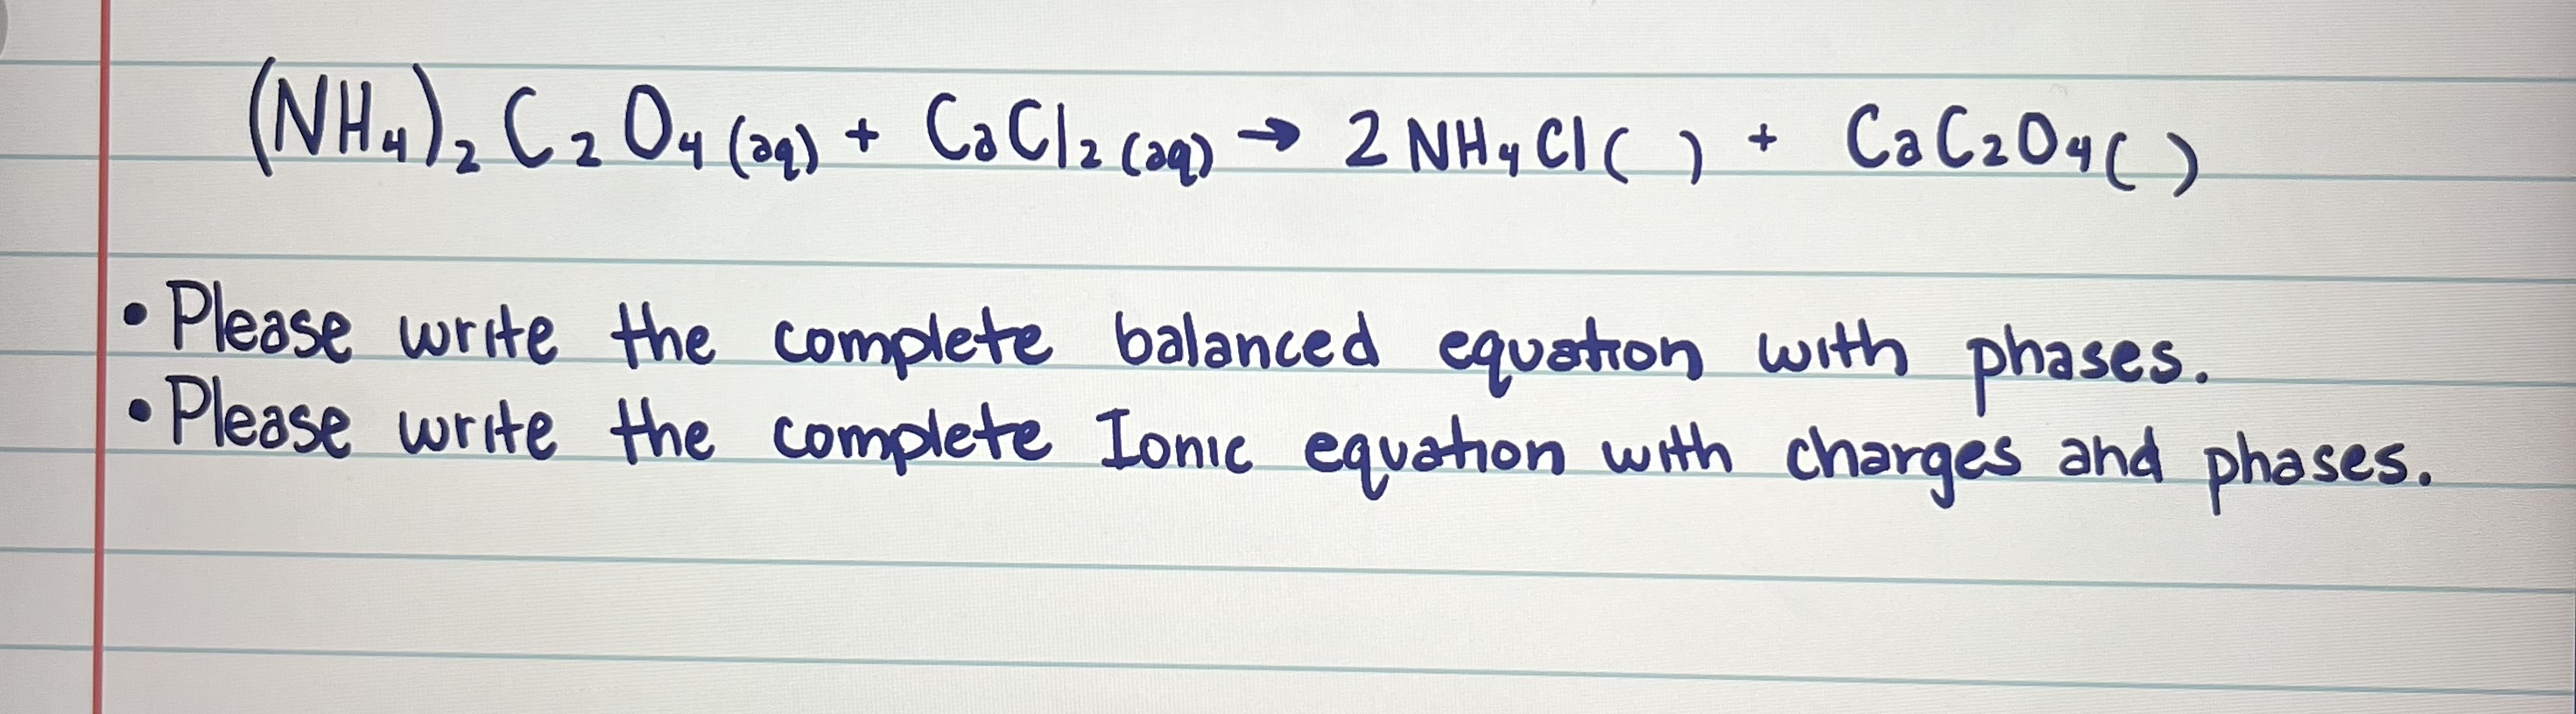 (NH₄)₂C₂O₄(aq) + CaCl₂(aq) → 2NH₄Cl( ) + CaC₂O₄( )
• Please write the complete balanced equation with phases.
• Please write the complete Ionic equation with charges and phases.